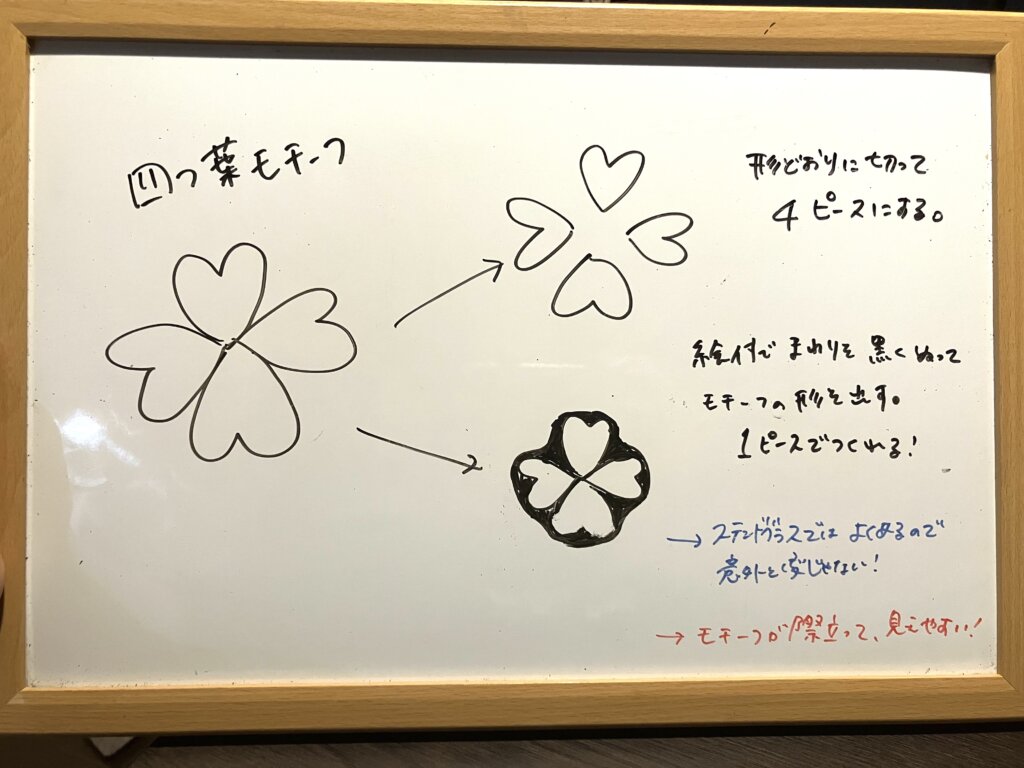 四つ葉モチーフ
形どおりに切って
4ピースにする。
絵付でまわりを黒くぬって
モチーフの形を出す。
1ピースでつくれる!
→ステンドグラスではよくあるので
意外と変じゃない!
→モチーフが際立って、見えやすい!